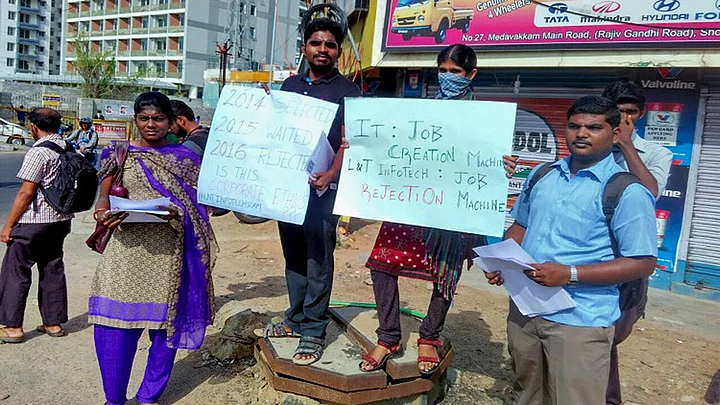 Genuine
4 Wheelers
TATA
mahindra
HYUNDAI
No.27, Medavakkam Main Road, (Rajiv Gandhi Road), Sho
Valvoline
2014 SELECTED
2015 WAITED
2016 REJECTED
IS THIS
CORPORATE ETHICS
IT : JOB
CREATION MACHINE
L&T INFOTECH : JOB
REJECTION MACHINE